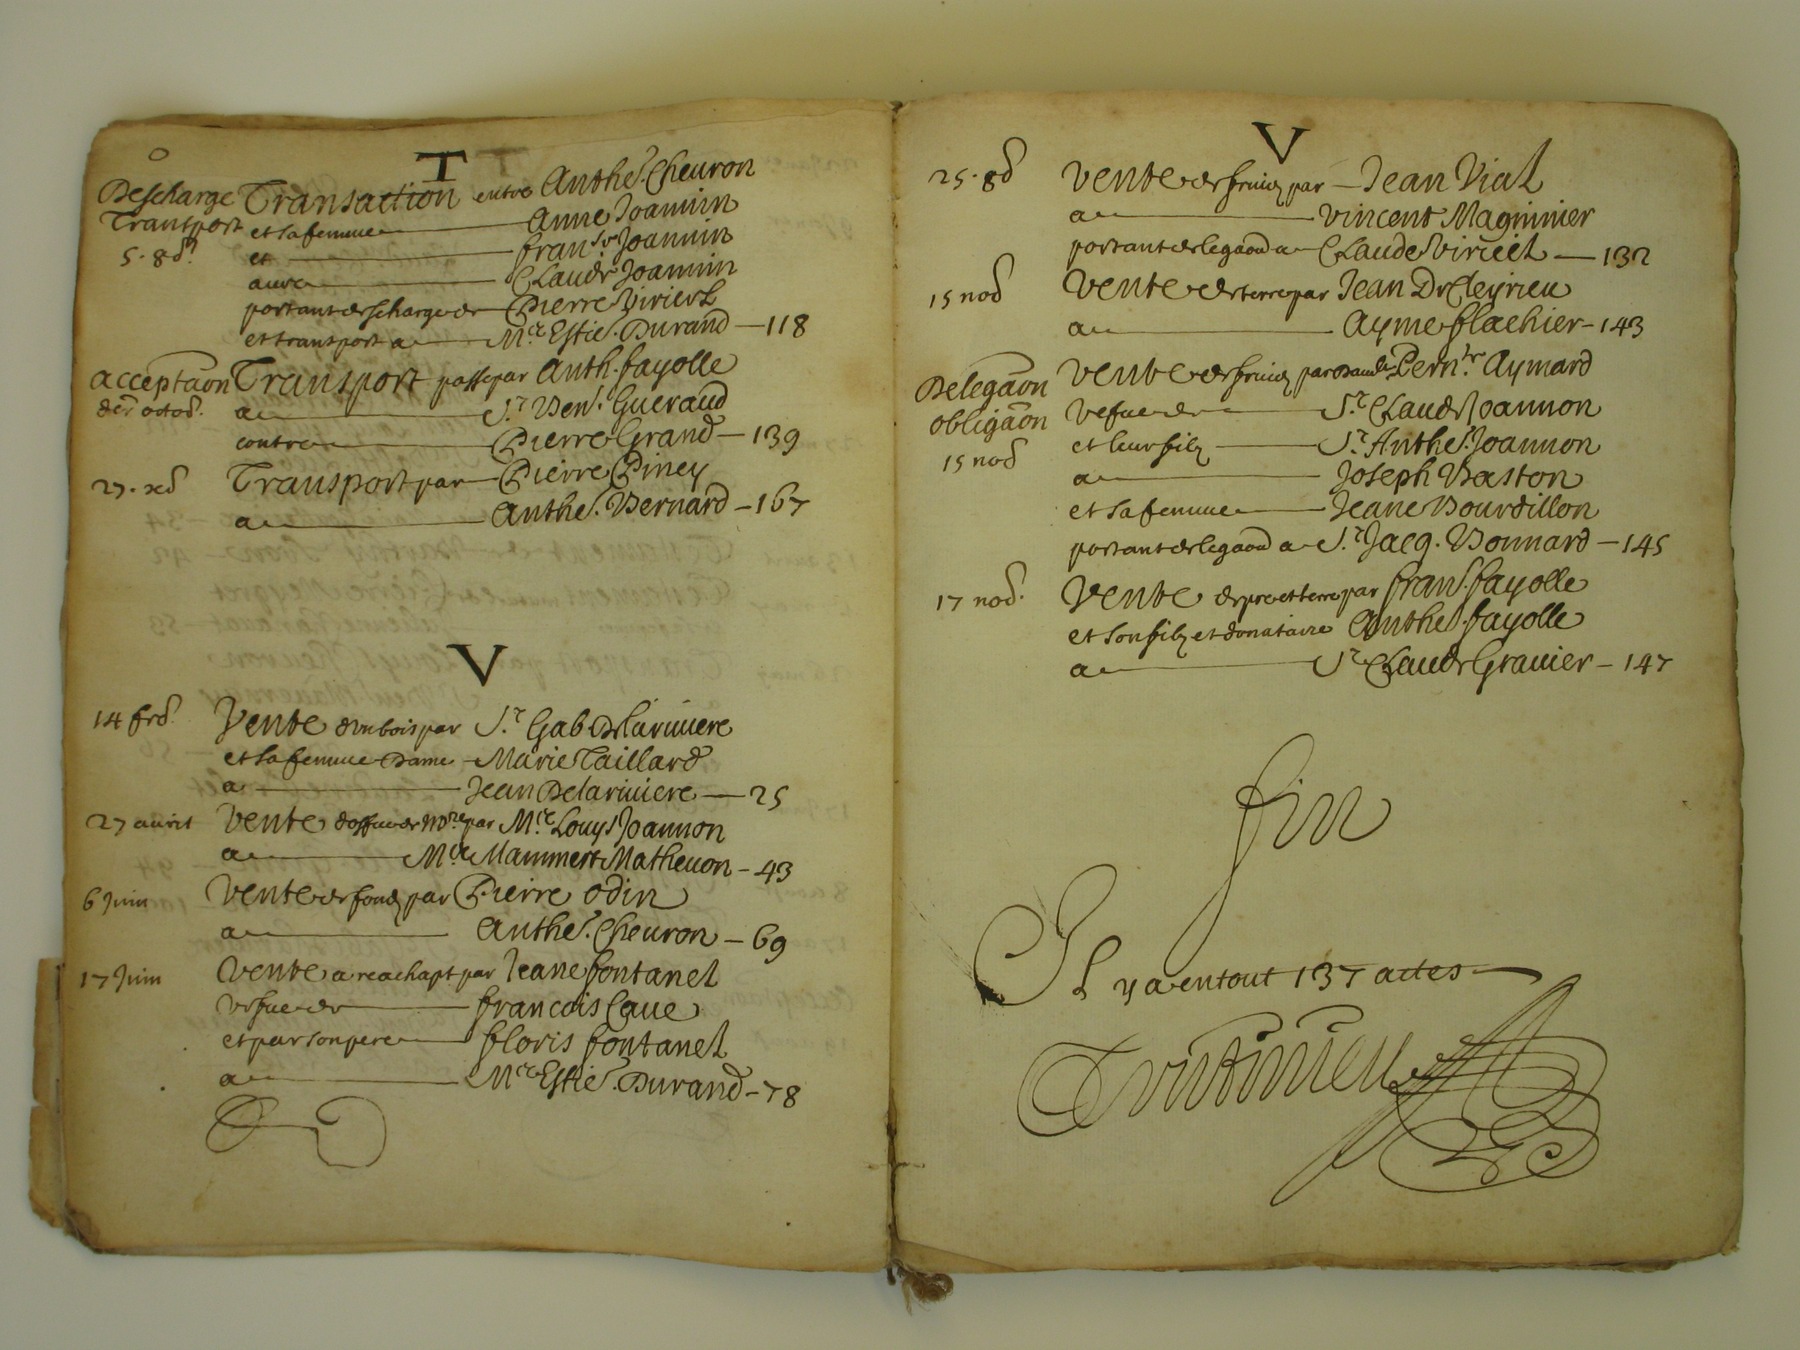 T
Descharge Transaction entre Anthe. Cheuron
Transport et sa femme Anne Joannin
5. 8d. et fran. Joannin
auxe Claude Joannin
portant descharge de Pierre Viriert
et transport a Mre Estie. Durand — 118
acceptaon Transport passe par Anth. fayolle
der octob. a Sr. Ben. Gueraud
contre Pierre Grand — 139
27. xd Transport par Pierre Piney
a Anthe. Bernard — 167
V
14 feb. Vente dun bois par Sr. Gab Delariuiere
et sa femme Dame Marie Taillard
a Jean Delariuiere — 25
27 auril Vente doffice de nore par Mre Louys Joannon
a Mre Mammert Matheuon — 43
6 Juin Vente de fondz par Pierre Odin
a Anthe. Cheuron — 69
17 Juin Vente a reachapt par Jeane fontanel
vefue de francois Caue
et par son pere floris fontanel
a Mre Estie. Durand — 78
V
25. 8d Vente de fruictz par — Jean Vial
a Vincent Magninier
portant delegaon a Claude Viriel — 132
15 nod Vente de terre par Jean De Cleyrieu
a Ayme flachier — 143
Delegaon Vente de fruictz par dam. Pern. Aymard
obligaon vefue de Sr. Claude Joannon
15 nod et leur filz Sr. Anthe. Joannon
a Joseph Baston
et sa femme Jeane Bourdillon
portant delegaon a Sr. Jacq. Bonnard — 145
17 nod. Vente de pre et terre par fran. fayolle
et son filz et donataire Anthe. fayolle
a Sr. Claude Grauier — 147
fin
Il y a en tout 137 actes